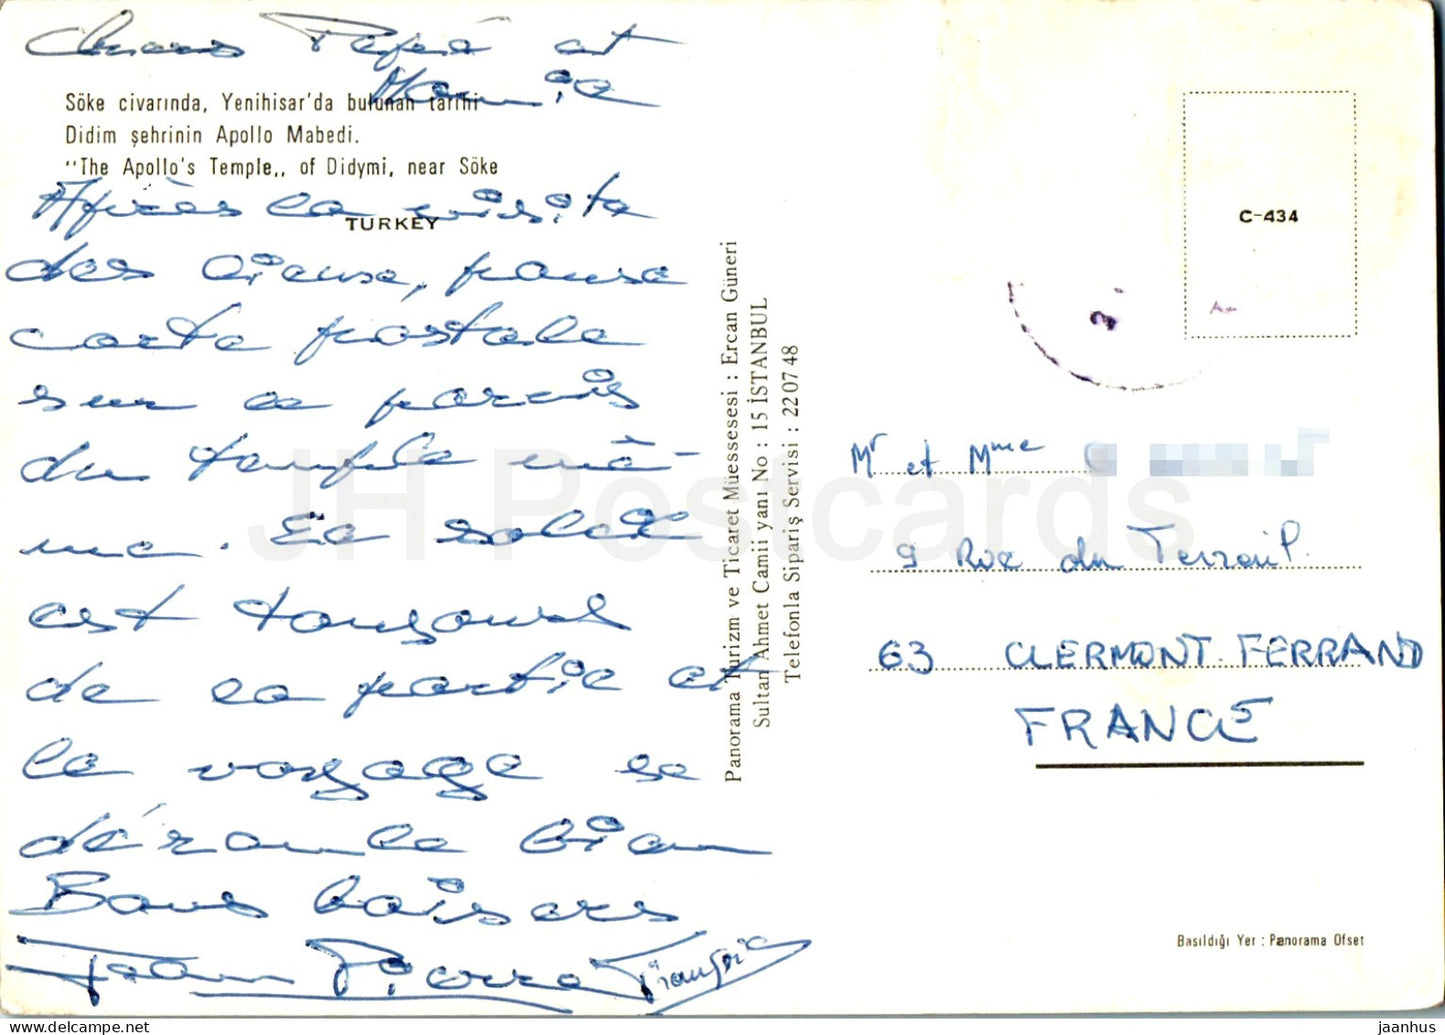 Chers Papé et
Mamie
Söke civarında, Yenihisar'da bulunan tarihi
Didim şehrinin Apollo Mabedi.
"The Apollo's Temple,, of Didymi, near Söke
TURKEY
Après la visite
des lieux, pause
carte postale
sur le parvis
du temple mê-
me. Le soleil
est toujours
de la partie et
le voyage se
déroule bien
Bons baisers
Jean Pierre Françoise
Panorama Turizm ve Ticaret Müessesesi : Ercan Güneri
Sultan Ahmet Camii yanı No : 15 İSTANBUL
Telefonla Sipariş Servisi : 22 07 48
C-434
Mr et Mme
9 Rue du Terrail
63 CLERMONT FERRAND
FRANCE
Basıldığı Yer : Panorama Ofset
JH Postcards
jaanhus
delcampe.net